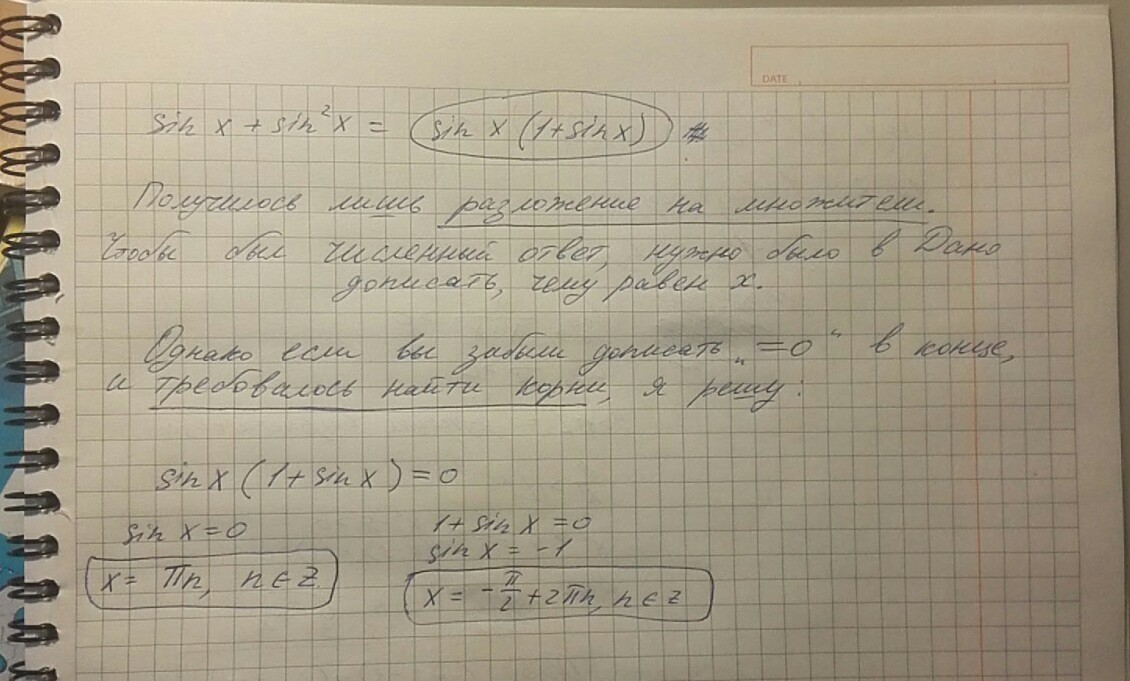 DATE
sin x + sin²x = sin x (1+sin x)
Получилось лишь разложение на множители.
Чтобы был численный ответ, нужно было в Дано
дописать, чему равен x.
Однако если вы забыли дописать „=0“ в конце,
и требовалось найти корни, я решу:
sin x (1+sin x) = 0
sin x = 0
x = πn, n ∈ Z
1+sin x = 0
sin x = -1
x = -π/2 + 2πn, n ∈ Z